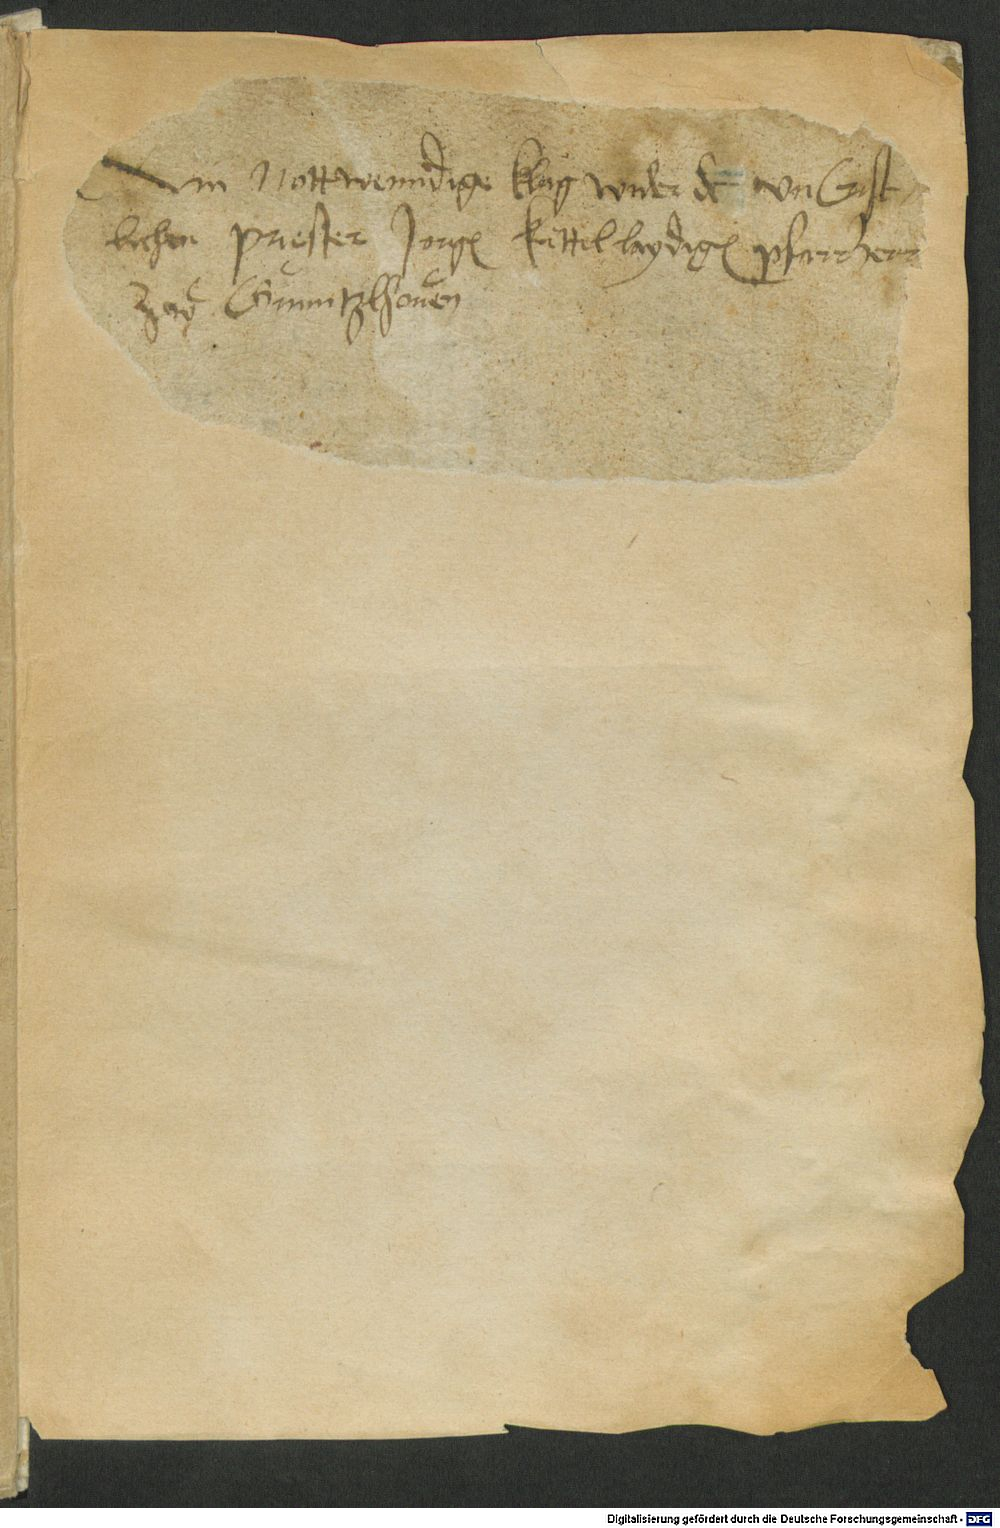 Ain Nottwenndige klag wider de vn Gist
lichen priester Jorgen kittel laydigen pfarrherr
zw Gimnitzhoven
Digitalisierung gefördert durch die Deutsche Forschungsgemeinschaft - DFG